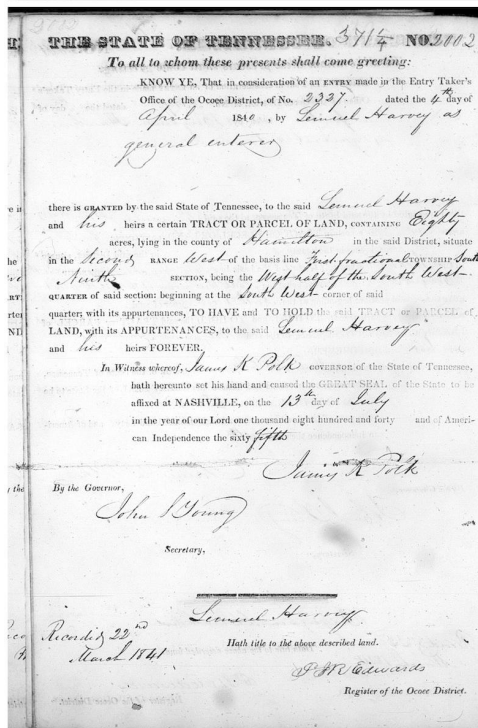 THE STATE OF TENNESSEE. 371 1/4 NO. 2002
To all to whom these presents shall come greeting:
KNOW YE, That in consideration of an ENTRY made in the Entry Taker's
Office of the Ocoee District, of No. 2327. dated the 4th day of
April 1840, by Lemuel Harvey as
general enterer
there is GRANTED by the said State of Tennessee, to the said Lemuel Harvey
and his heirs a certain TRACT OR PARCEL OF LAND, CONTAINING Eighty
acres, lying in the county of Hamilton in the said District, situate
in the Second RANGE West of the basis line First fractional TOWNSHIP South
Ninth SECTION, being the West half of the South West
QUARTER of said section: beginning at the South West corner of said
quarter; with its appurtenances, TO HAVE and TO HOLD the said TRACT or PARCEL of
LAND, with its APPURTENANCES, to the said Lemuel Harvey
and his heirs FOREVER.
In Witness whereof, James K Polk GOVERNOR of the State of Tennessee,
hath hereunto set his hand and caused the GREAT SEAL of the State to be
affixed at NASHVILLE, on the 13th day of July
in the year of our Lord one thousand eight hundred and forty and of Ameri-
can Independence the sixty fifth
James K Polk
By the Governor,
John S Young
Secretary,
Lemuel Harvey
Recorded 22nd
Hath title to the above described land.
March 1841
Edwards
Register of the Ocoee District.